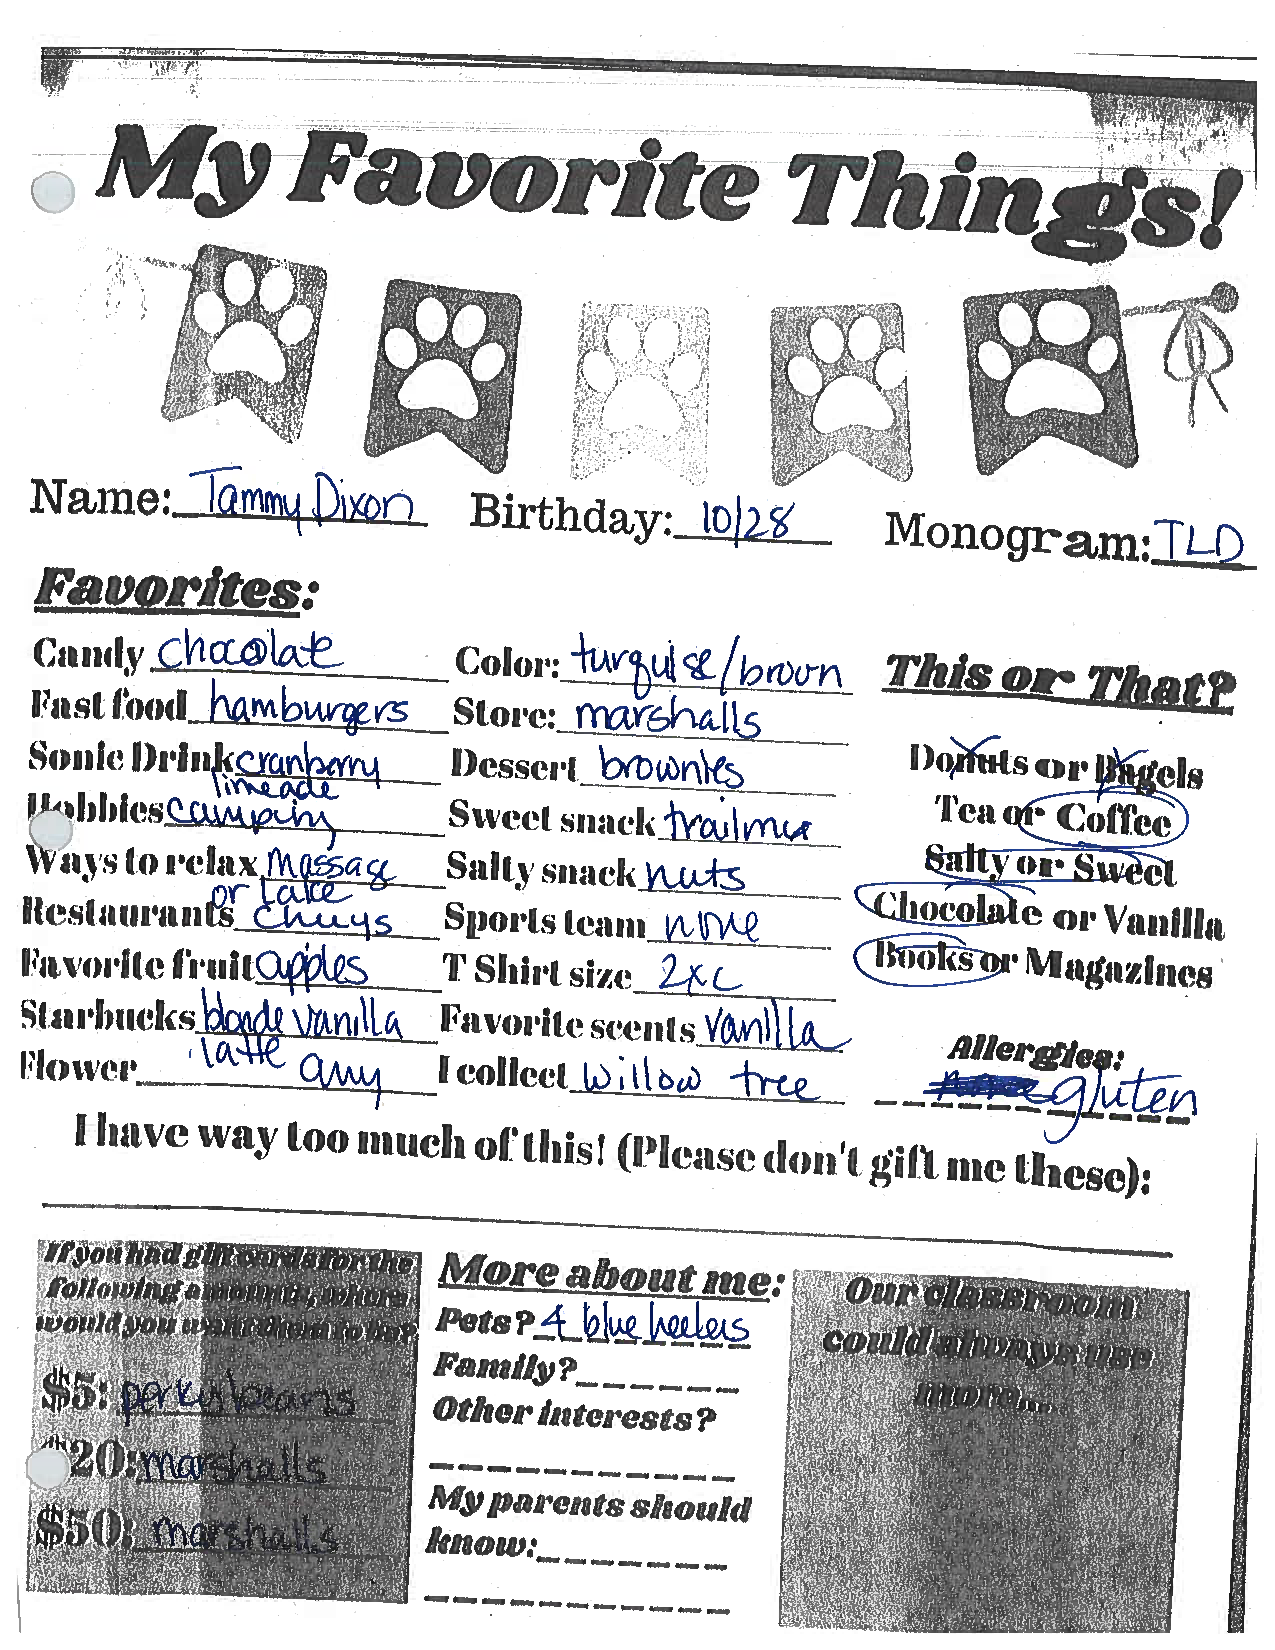 My Favorite Things!
Name: Tammy Dixon Birthday: 10/28 Monogram: TLD
Favorites:
Candy chocolate
Fast food hamburgers
Sonic Drink cranberry
limeade
Hobbies camping
Ways to relax massage
or Lake
Restaurants chuys
Favorite fruit apples
Starbucks blonde vanilla
latte
Flower any
Color: turquise/brown
Store: marshalls
Dessert brownies
Sweet snack trailmix
Salty snack nuts
Sports team none
T Shirt size 2XL
Favorite scents vanilla
I collect willow tree
This or That?
Donuts or Bagels
Tea or Coffee
Salty or Sweet
Chocolate or Vanilla
Books or Magazines
Allergies:
none gluten
I have way too much of this! (Please don't gift me these):
If you had gift cards for the
following amounts, where
would you want them to be?
$5: perky beans
$20: marshalls
$50: marshalls
More about me:
Pets? 4 blue heelers
Family?
Other interests?
My parents should
know:
Our classroom
could always use
more...